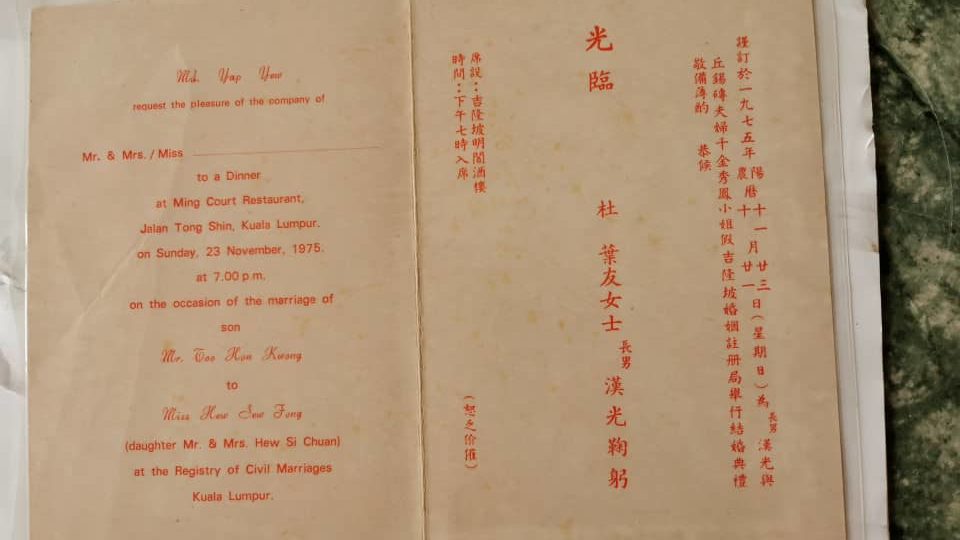 Md. Yap Yew
request the pleasure of the company of
Mr. & Mrs. / Miss
to a Dinner
at Ming Court Restaurant,
Jalan Tong Shin, Kuala Lumpur.
on Sunday, 23 November, 1975.
at 7.00 p.m.
on the occasion of the marriage of
son
Mr. Too Hon Kwong
to
Miss Hew Sew Fong
(daughter Mr. & Mrs. Hew Si Chuan)
at the Registry of Civil Marriages
Kuala Lumpur.
謹訂於一九七五年陽農曆十一月廿三十月廿一日(星期日)為長男漢光與
丘錫磚夫婦千金秀鳳小姐假吉隆坡婚姻註册局舉行結婚典禮
敬備薄酌 恭候
光臨
杜 葉友女士 長男 漢光鞠躬
席設:吉隆坡明閣酒樓
時間:下午七時入席
(恕乏价催)